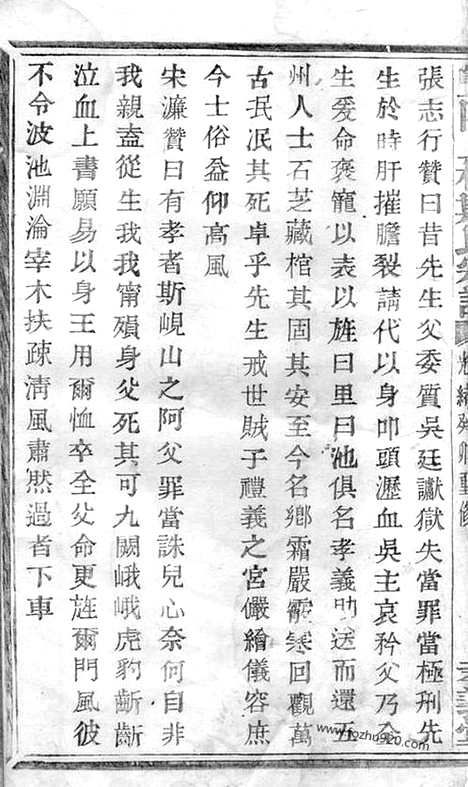 張志行贊曰昔先生父委質吳廷讞獄失當罪當極刑先
生於時肝摧膽裂請代以身叩頭瀝血吳主哀矜父乃全
生爰命褒寵以表以旌曰里曰池俱名孝義助送而還五
州人士石芝藏棺其固其安至今名鄉霜嚴霰寒回觀萬
古氓氓其死卓乎先生戒世賊于禮義之宮儼繪儀容庶
今士俗益仰高風
宋濂贊曰有孝者斯峴山之阿父罪當誅兒心奈何自非
我親盍從生我我甯殞身父死其可九闕峨峨虎豹齗齗
泣血上書願易以身王用爾恤卒全父命更旌爾門風彼
不令波池淵淪宰木扶疎清風肅然過者下車
www.jiozhu920.com